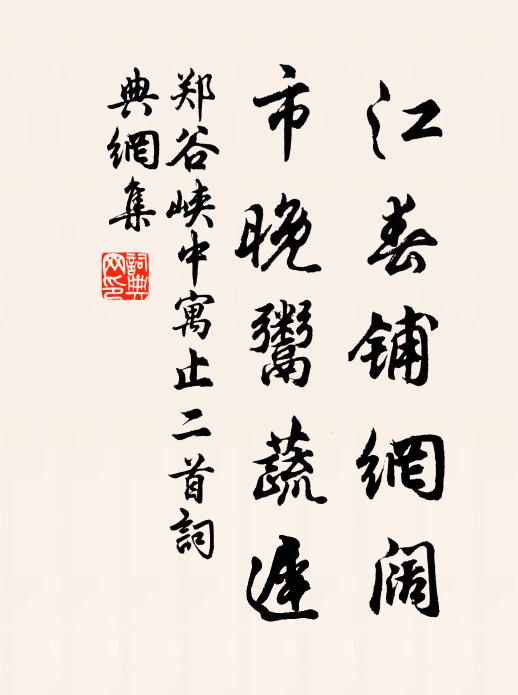 江春铺網阔
市晚鬻蔬遲
郑谷峡中寓止二首詞
典網集
詞典网印